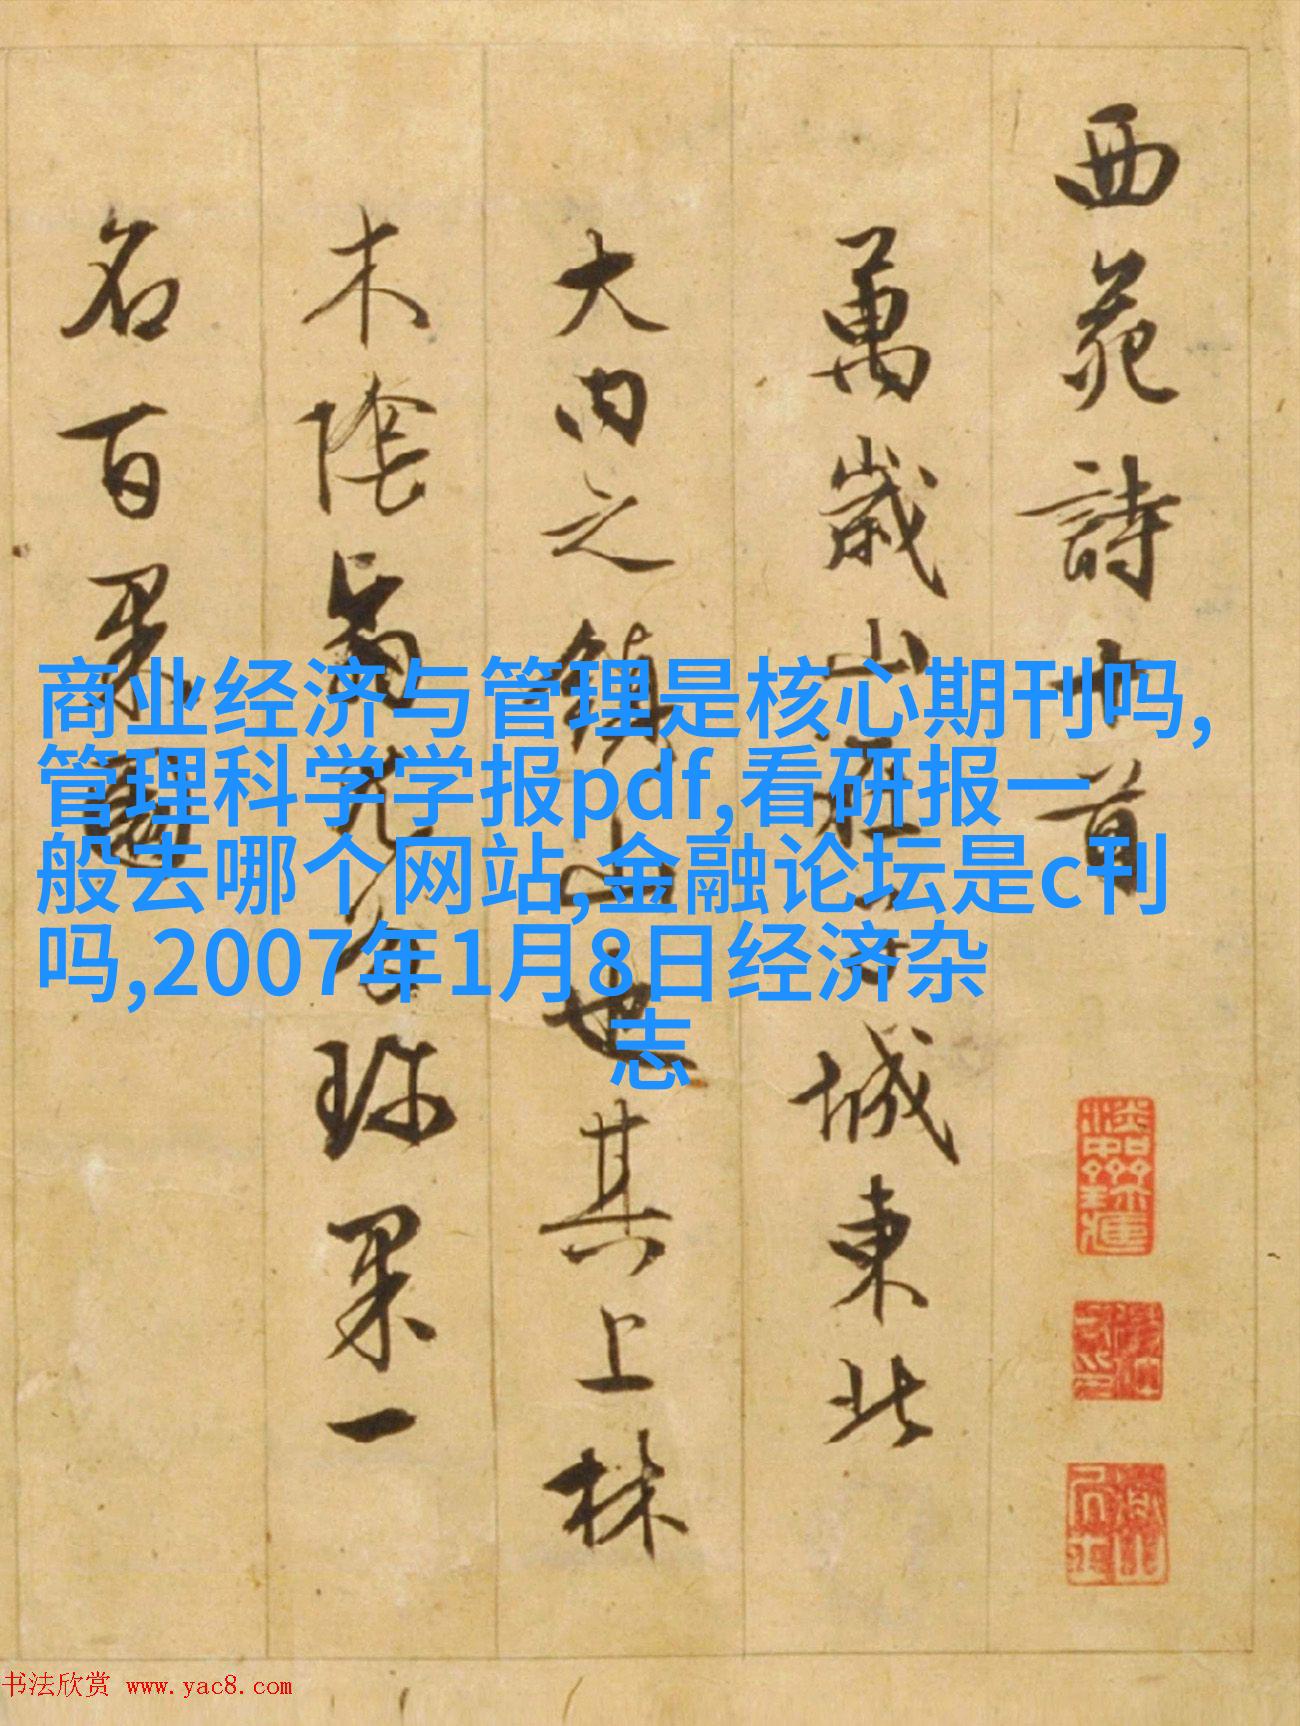 西苑詩十首
萬歲山在子城東北
大內之鎮山也其上林
木陰翳尤多珍果一
名百果園
商业经济与管理是核心期刊吗,
管理科学学报pdf,看研报一
般去哪个网站,金融论坛是c刊
吗,2007年1月8日经济杂
志
书法欣赏 www.yac8.com